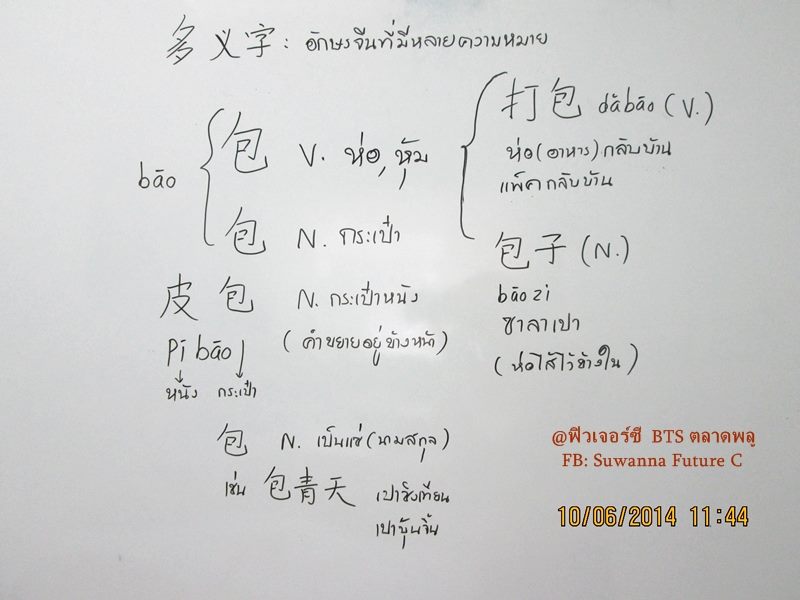 多义字 : อักษรจีนที่มีหลายความหมาย
bāo
包 V. ห่อ, หุ้ม
包 N. กระเป๋า
皮包 N. กระเป๋าหนัง
(คำขยายอยู่ข้างหน้า)
Pí bāo
หนัง กระเป๋า
包 N. เป็นแซ่ (นามสกุล)
เช่น 包青天 เปาชิงเทียน
เปาบุ้นจิ้น
打包 dǎbāo (V.)
ห่อ(อาหาร)กลับบ้าน
แพ็คกลับบ้าน
包子 (N.)
bāo zi
ซาลาเปา
(ห่อไส้ไว้ข้างใน)
@ฟิวเจอร์ซี BTS ตลาดพลู
FB: Suwanna Future C
10/06/2014 11:44